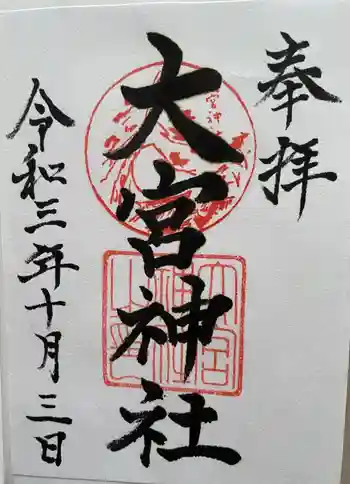 奉拝
大宮神社
令和三年十月三日